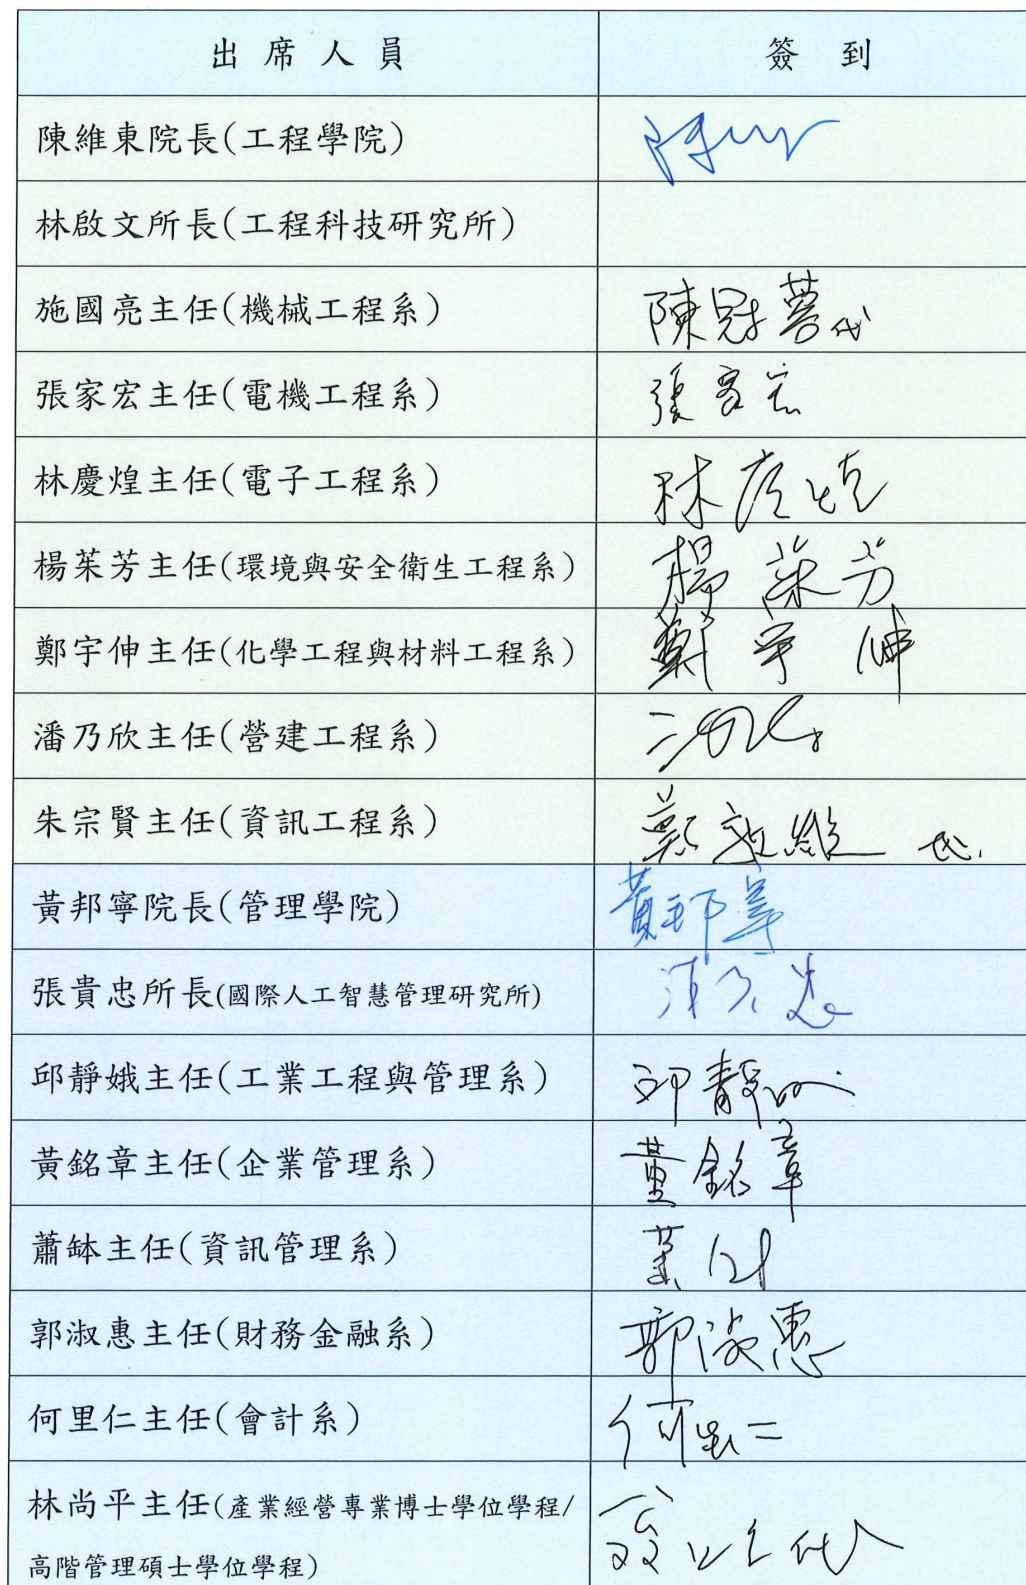 出席人員 簽到
陳維東院長(工程學院)
林啟文所長(工程科技研究所)
施國亮主任(機械工程系) 陳冠蓉代
張家宏主任(電機工程系) 張家宏
林慶煌主任(電子工程系) 林慶煌
楊茱芳主任(環境與安全衛生工程系) 楊茱芳
鄭宇伸主任(化學工程與材料工程系) 鄭宇伸
潘乃欣主任(營建工程系)
朱宗賢主任(資訊工程系) 代
黃邦寧院長(管理學院) 黃邦寧
張貴忠所長(國際人工智慧管理研究所) 張貴忠
邱靜娥主任(工業工程與管理系) 邱靜娥
黃銘章主任(企業管理系) 黃銘章
蕭缽主任(資訊管理系)
郭淑惠主任(財務金融系) 郭淑惠
何里仁主任(會計系) 何里仁
林尚平主任(產業經營專業博士學位學程/
高階管理碩士學位學程)